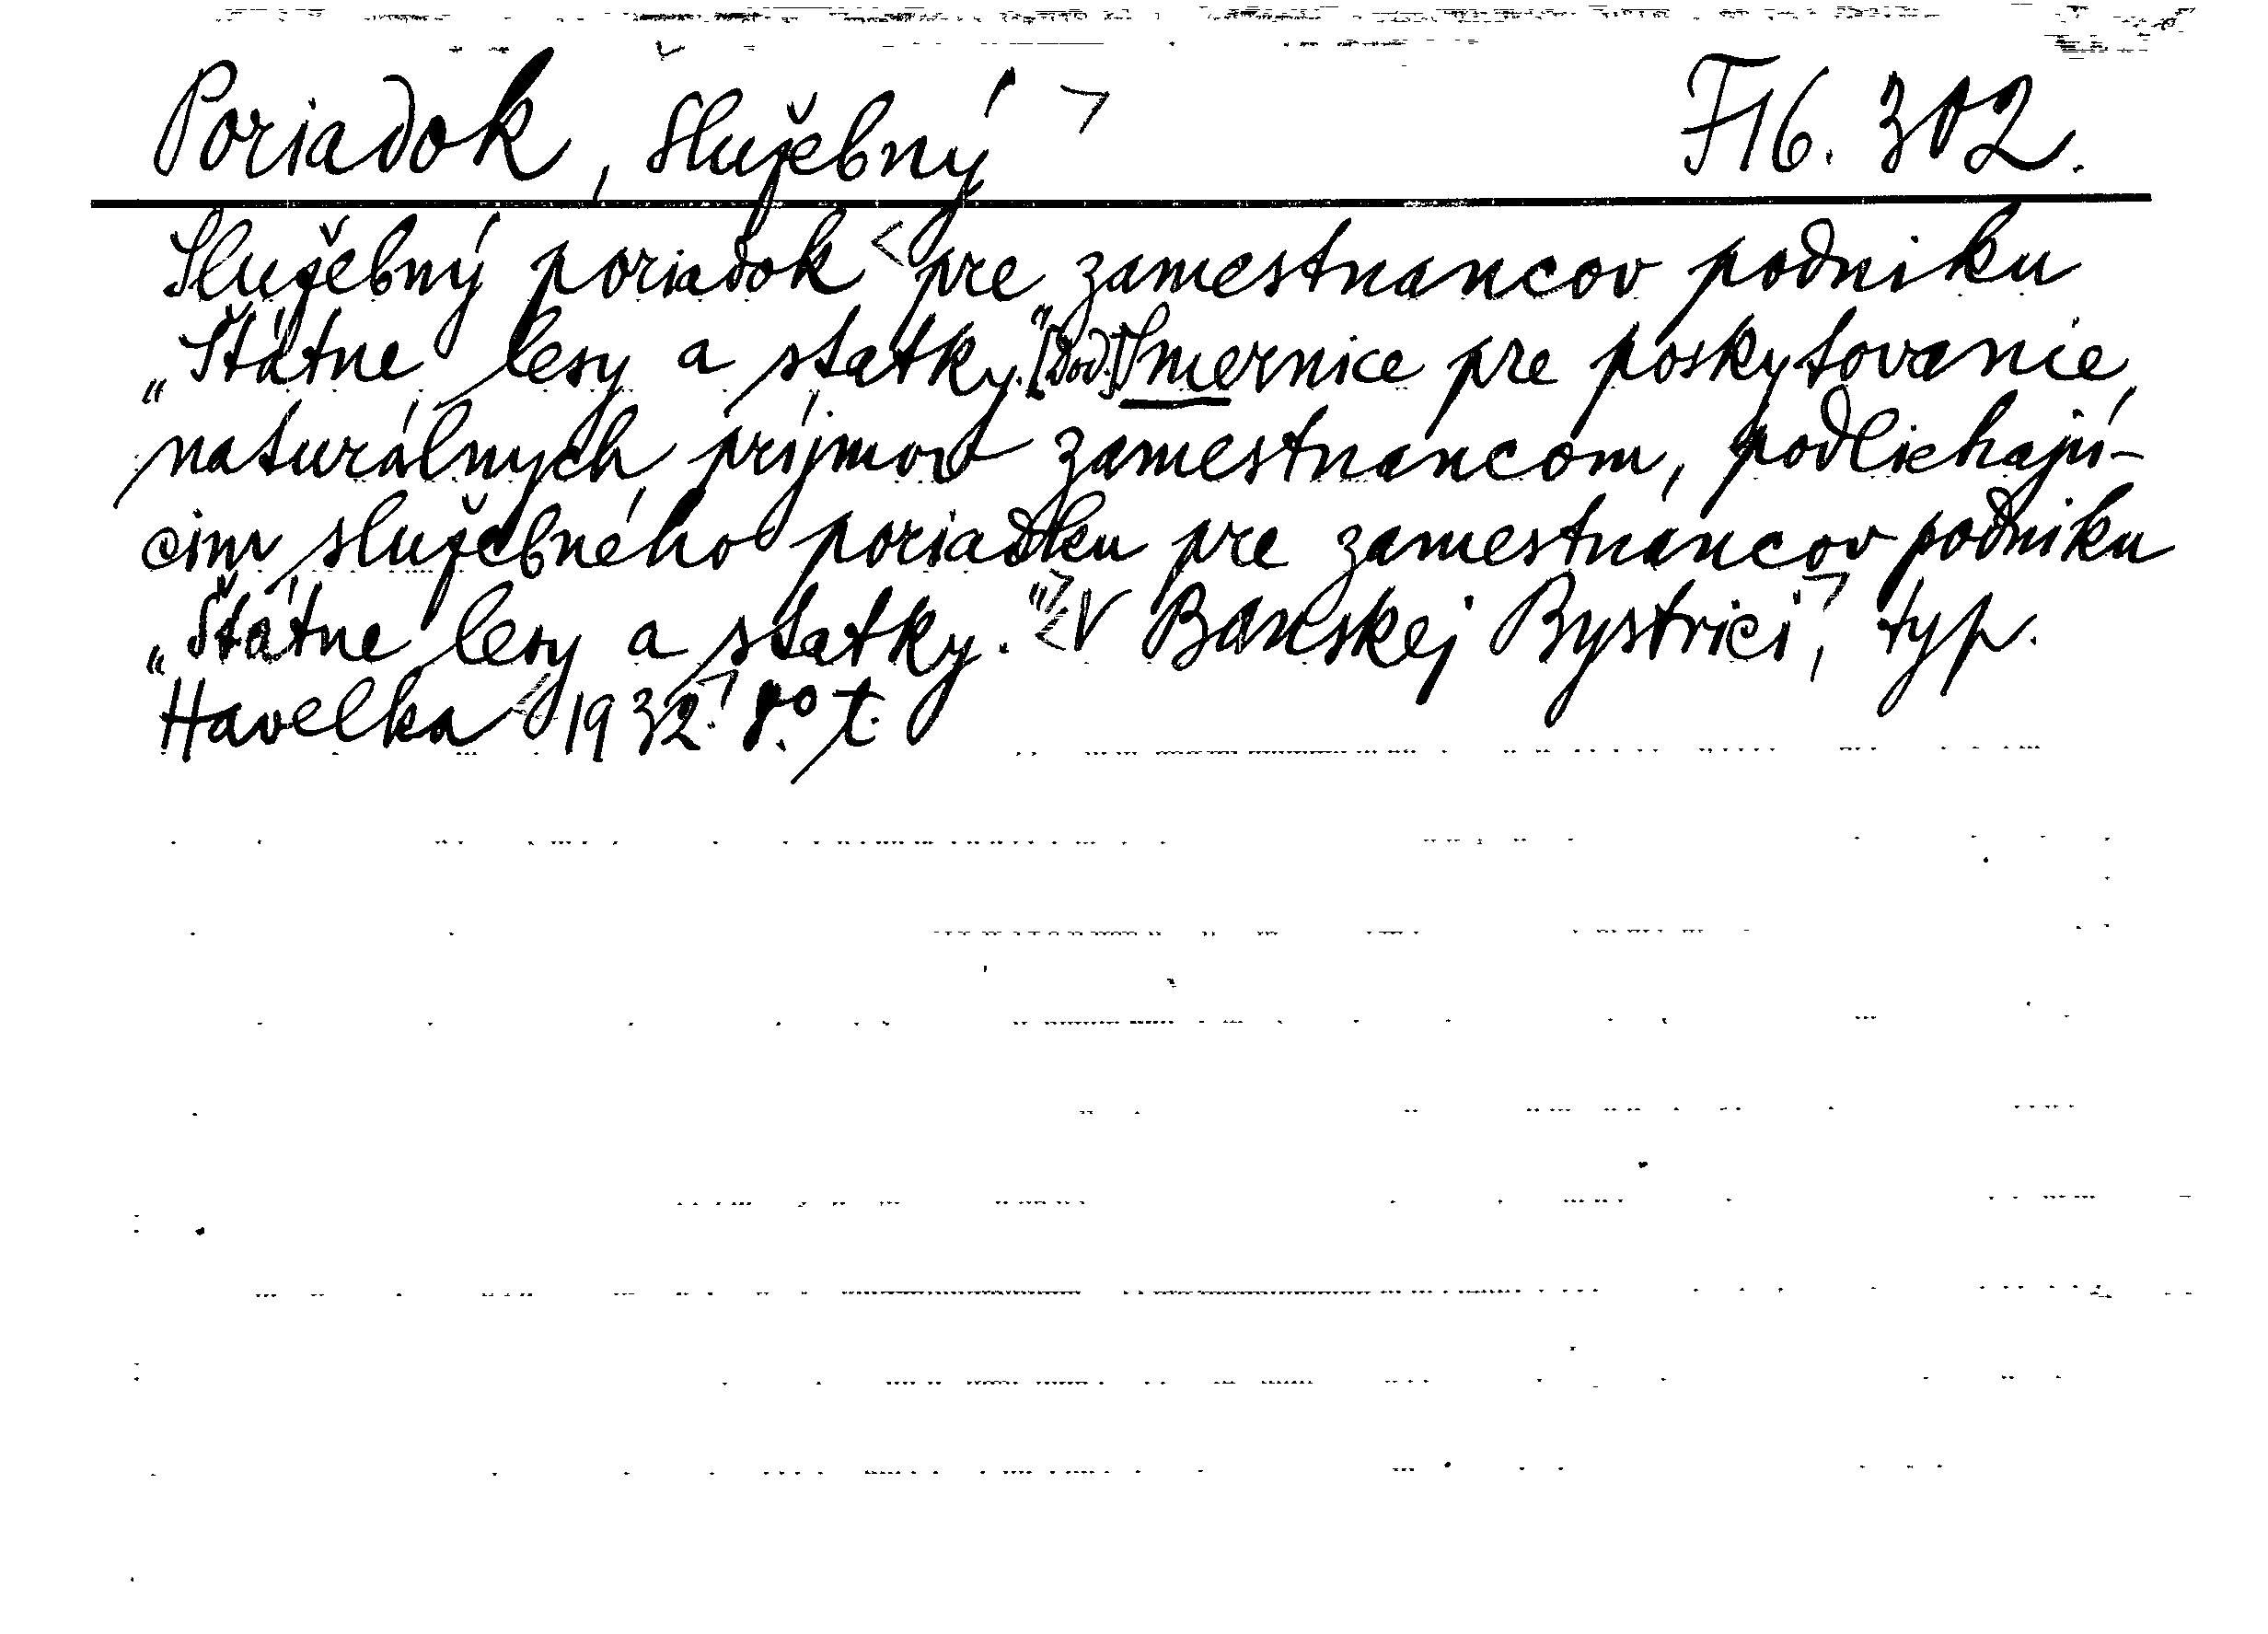 Poriadok, služebný F16.302.
Služebný poriadok pre zamestnancov podniku
„Štátne lesy a statky.“ [Dod.] Smernice pre poskytovanie
naturálnych príjmov zamestnancom, podliehajú-
cim služebného poriadku pre zamestnancov podniku
„Štátne lesy a statky.“ V Banskej Bystrici, typ.
Havelka 1932. 8° t.